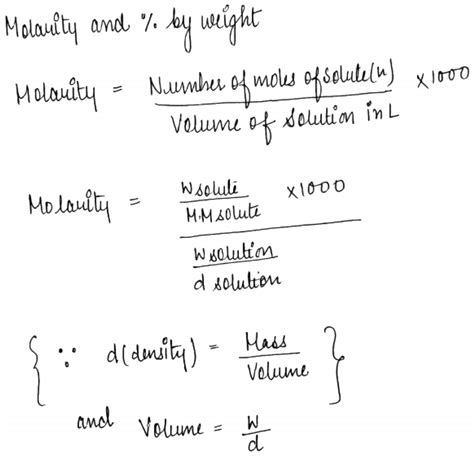 Molarity and % by weight
Molarity = Number of moles of solute(n) / Volume of Solution in L ×1000
Molarity = (W solute / M.M solute ×1000) / (W solution / d solution)
{ ∵ d(density) = Mass / Volume }
and Volume = W / d